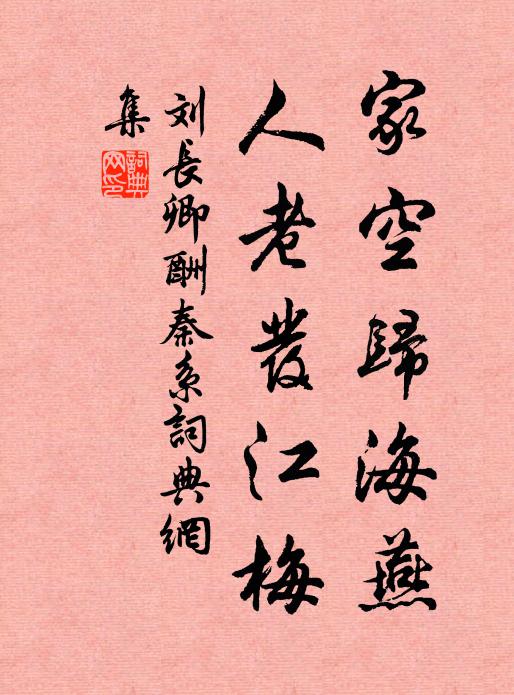 家空歸海燕
人老發江梅
刘長卿酬秦系詞典網
集
詞典网印